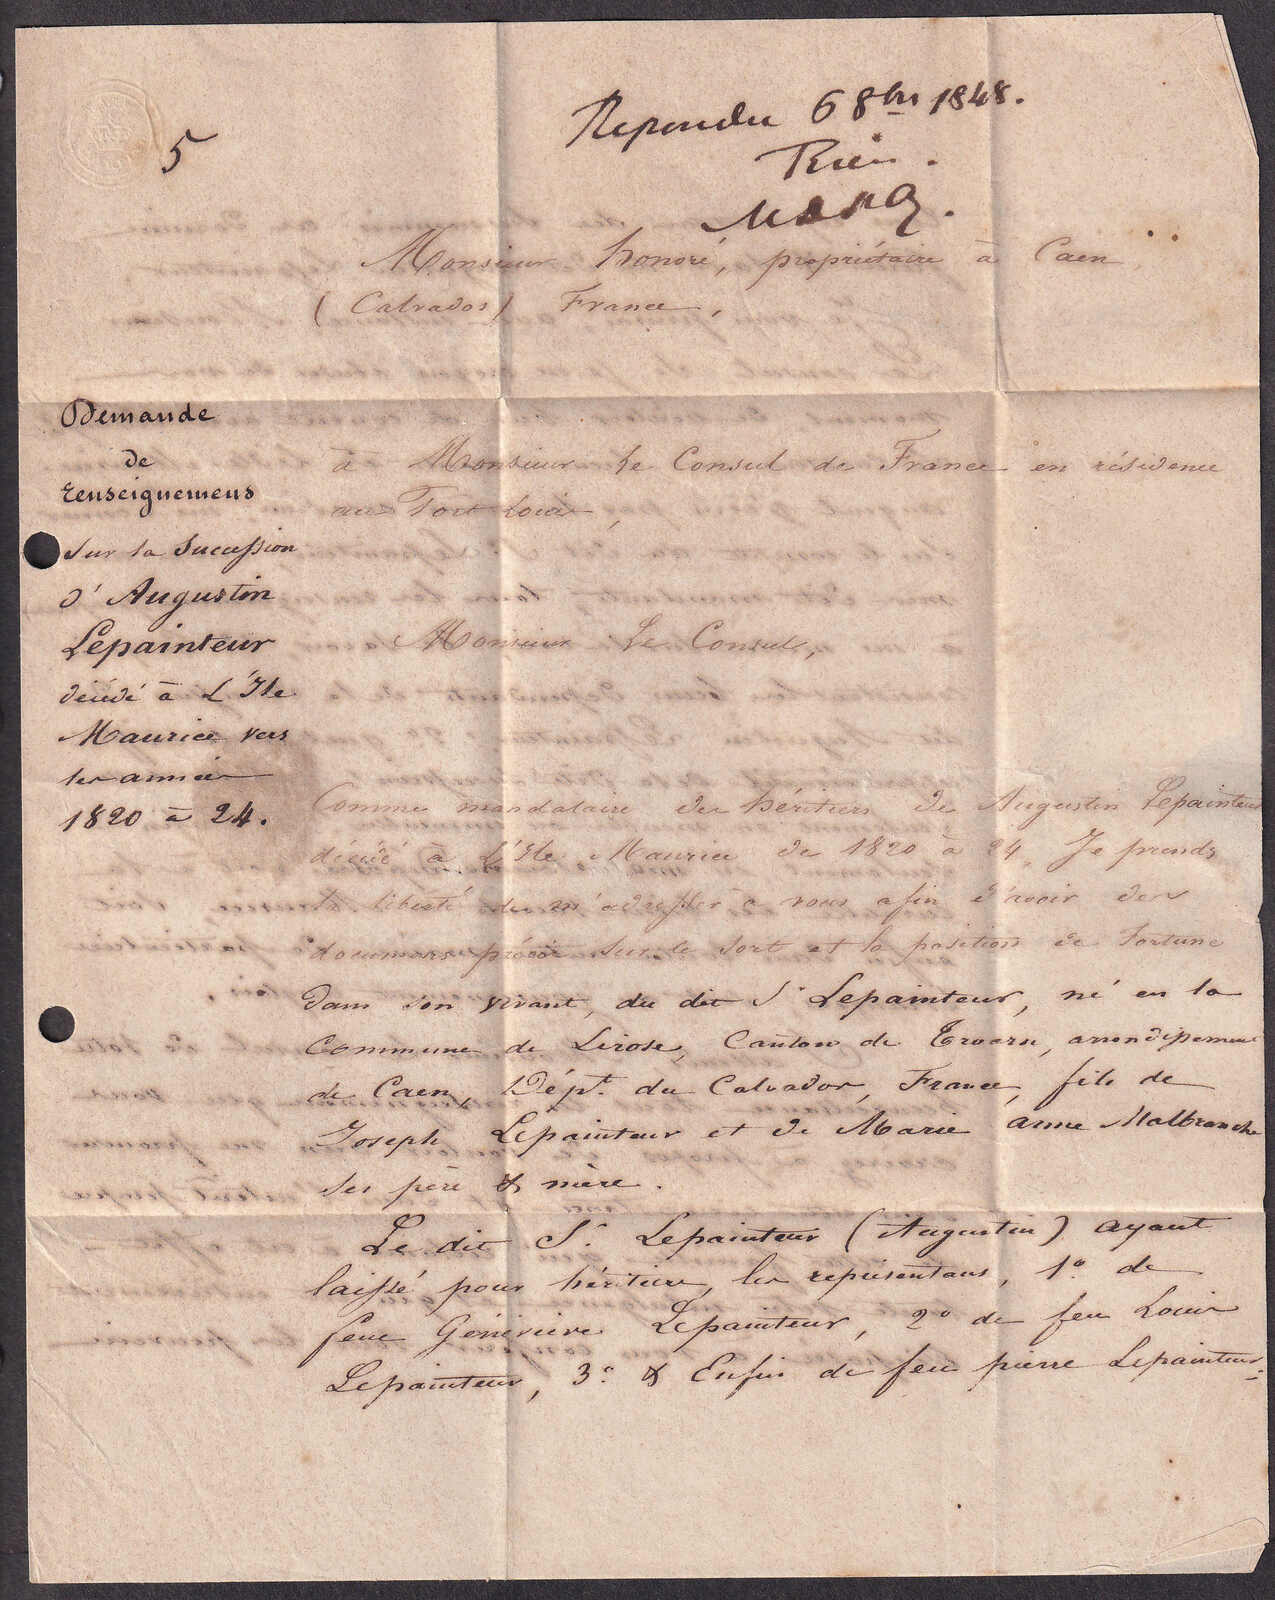 5
Repondu 6 8bre 1848.
Rien.
Monsieur honoré, propriétaire à Caen
(Calvados) France,
Demande
de
renseignemens
sur la Succession
d'Augustin
Lepainteur
décédé à L'Ile
Maurice vers
les années
1820 à 24.
à Monsieur Le Consul de France en résidence
au Port Louis,
Monsieur Le Consul,
Comme mandataire des héritiers de Augustin Lepainteur
décédé à L'Ile Maurice de 1820 à 24, Je prends
la liberté de m'adresser à vous afin d'avoir des
documens précis sur le sort et la position de fortune
dans son vivant, du dit Sr Lepainteur, né en la
Commune de Lirose, Canton de Troarn, arrondissement
de Caen, Dépt. du Calvados, France, fils de
Joseph Lepainteur et de Marie anne Malbranche
ses père & mère.
Le dit Sr. Lepainteur (Augustin) ayant
laissé pour héritiers, les représentans, 1° de
feue Généviève Lepainteur, 2° de feu Louis
Lepainteur, 3° & Enfin de feu pierre Lepainteur.